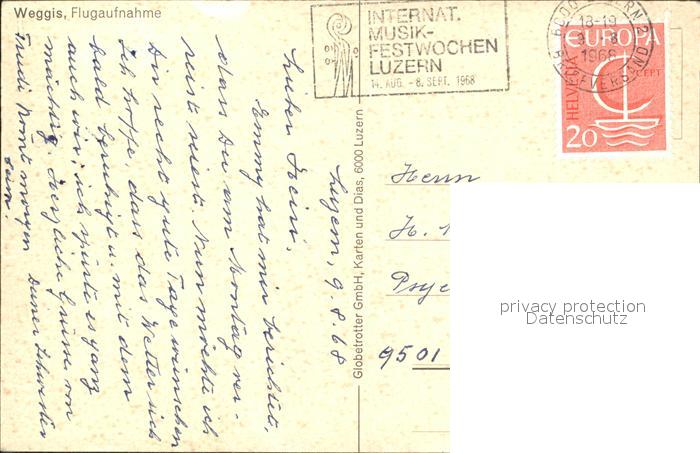 Weggis, Flugaufnahme
INTERNAT.
MUSIK-
FESTWOCHEN
LUZERN
14. AUG. - 8. SEPT. 1968
18-19
1968
EUROPA
CEPT
HELVETIA
20
Globetrotter GmbH, Karten und Dias, 6000 Luzern
Luzern, 9.8.68
Lieber Heini,
Emmy hat mir berichtet,
dass Du am Montag ver-
reist seiest. Nun möchte ich
Dir recht gute Tage wünschen
Ich hoffe, dass das Wetter sich
bald beruhigt u. mit dem
auch wir; ich spürte es ganz
mächtig. Herzliche Grüsse von
Deiner Schwester
Trudi kommt morgen
heim.
Herrn
H.
9501
privacy protection
Datenschutz